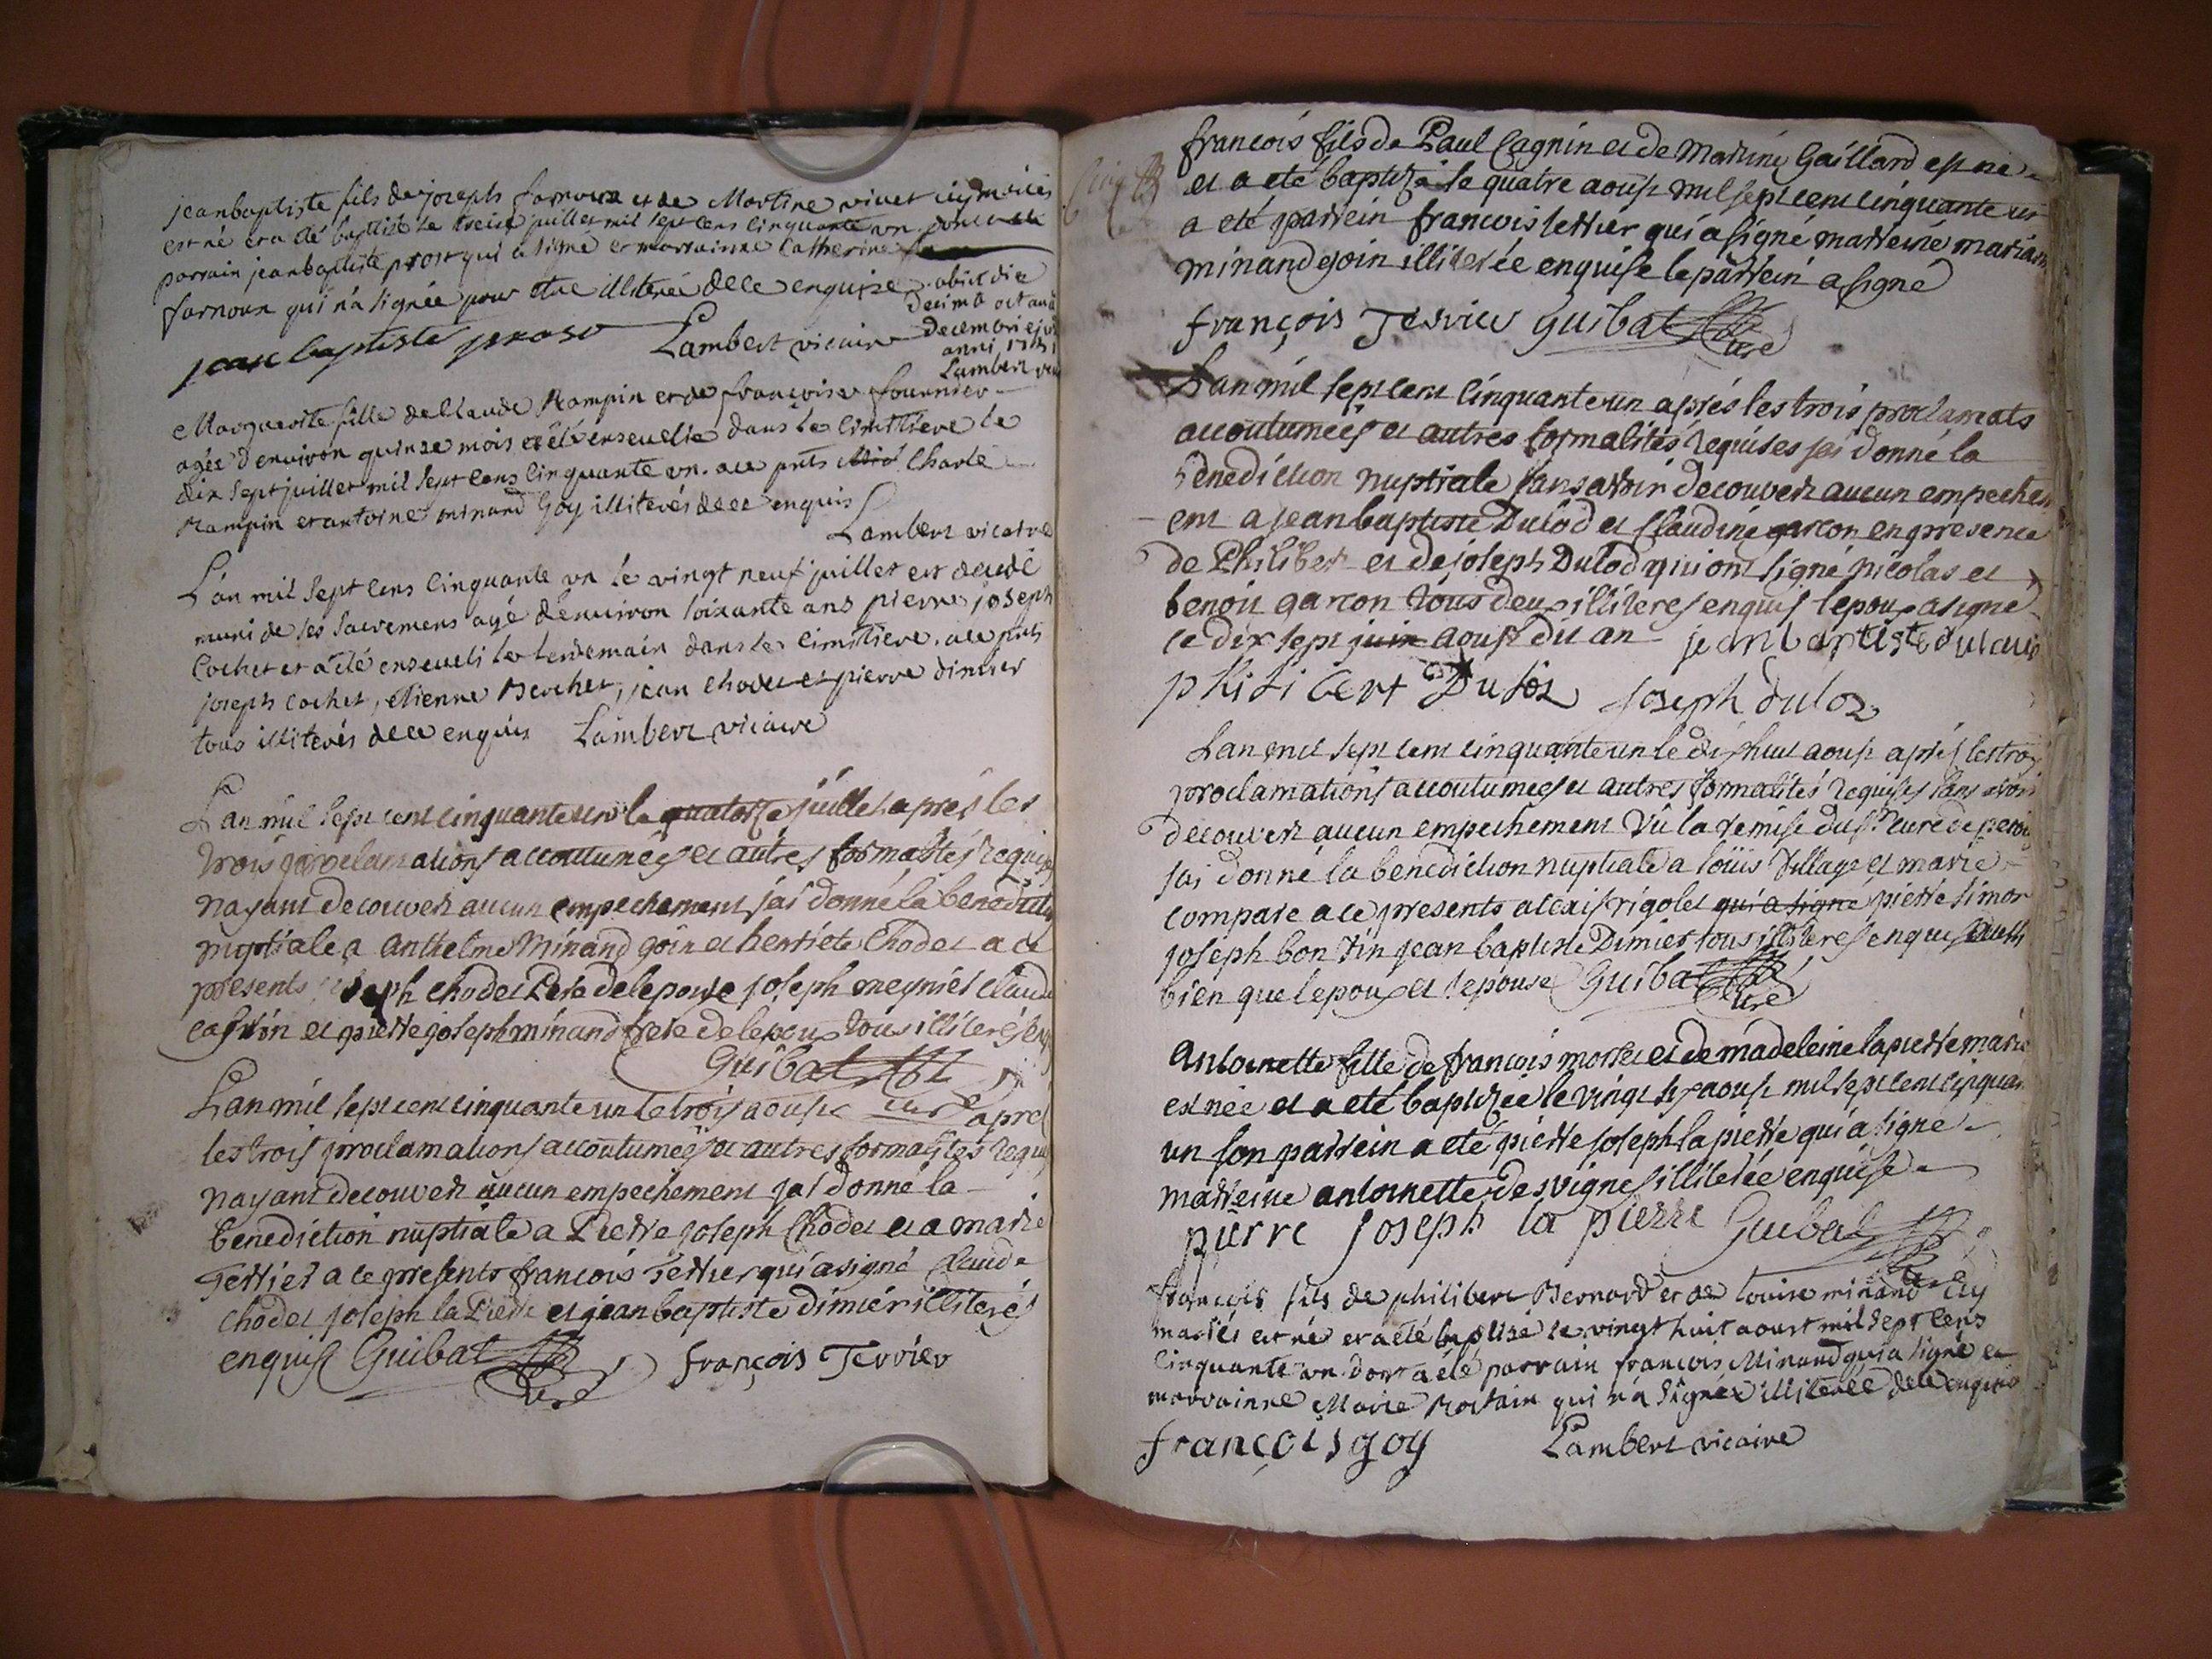 jeanbaptiste fils de joseph farnoux et de Martine vivet
est né et a été baptisé le treize juillet mil sept cens cinquante un
parrain jeanbaptiste prost qui a signé et marrainne Catherine
farnoux qui n'a signée pour etre illiterée de ce enquise
obiit die
decima octava
decembris
anni 1751
Lambert
jean baptiste prost Lambert vicaire
Marguerite fille de Claude Rampin et de françoise fournier
agée d'environ quinze mois a été ensevelie dans le cimitiere le
dix sept juillet mil sept cens cinquante un. a ce pnts Charle
Rampin et antoine minand Goy illiterés de ce enquis
Lambert vicaire
L'an mil sept cens cinquante un le vingt neuf juillet est decedé
muni de ses sacremens agé d'environ soixante ans pierre joseph
Cochet et a été enseveli le lendemain dans le cimitiere. a ce pnts
joseph Cochet, etienne Berthet, jean Chodet et pierre dimier
tous illiterés de ce enquis Lambert vicaire
Lan mil sept cent cinquante un le quatorze juillet apres les
trois proclamations accoutumées et autres formalités requises
nayant decouvert aucun empechement jai donné la
nuptiale a anthelme Minand goin et henriete Chodet a ce
presents joseph chodet Pere de lepouse joseph meynier claude
et pierre joseph minand frere de lepoux tous illiterés
Guibat
curé
Lan mil sept cent cinquante un le trois aoust apres
les trois proclamations accoutumées et autres formalités
nayant decouvert aucun empechement jai donné la
benediction nuptiale a Pierre joseph Chodet et a marie
Terrier a ce presents francois Terrier qui a signé Claude
chodet joseph la Pierre et jean baptiste dimier illiterés
enquis Guibat curé françois Terrier
francois fils de Paul Cagnin et de Marine Gaillard est né
et a eté baptizé le quatre aoust mil sept cent cinquante un
a eté parrein francois terrier qui a signé marreine mariane
minand goin illiterée enquise le parrein a signé
françois Terrier Guibat curé
Lan mil sept cent cinquante un aprés les trois proclamats
accoutumées et autres formalités requises jai donné la
benediction nuptiale sans avoir decouvert aucun empechem
ent a jean baptiste Dulod et Claudine garcon en presence
de Philibert et de joseph Dulod qui ont signé nicolas et
benoit garcon tous deux illiteres enquis lepoux a signé
le dix sept juin aoust dit an jean baptiste
philibert Duloz joseph duloz
Lan mil sept cent cinquante un le dix huit aoust aprés les trois
proclamations accoutumées et autres formalités requises sans avoir
decouvert aucun empechement vû la remise du sr curé de
jai donné la benediction nuptiale a loüis Village et marie
compare a ce presents alexis rigolet qui a signé pierre simon
joseph bon vin jean baptiste Dimier tous illiteres enquis aussi
bien que lepoux et lepouse Guibat curé
Antoinette fille de francois morlet et de madeleine lapierre mariés
est née et a eté baptizée le vingt six aoust mil sept cent cinquante
un son parrein a eté pierre joseph la pierre qui a signé
marreine antoinette desvignes illiterée enquise
pierre joseph la pierre Guibat
curé
françois fils de philibert Bernard et de Louise minand
mariés est né et a été baptisé le vingt huit aoust mil sept cens
cinquante un. dont a été parrain françois Minand qui a signé et
marrainne Marie Rostain qui n'a signée illiterée de ce enquise
françois goy Lambert vicaire